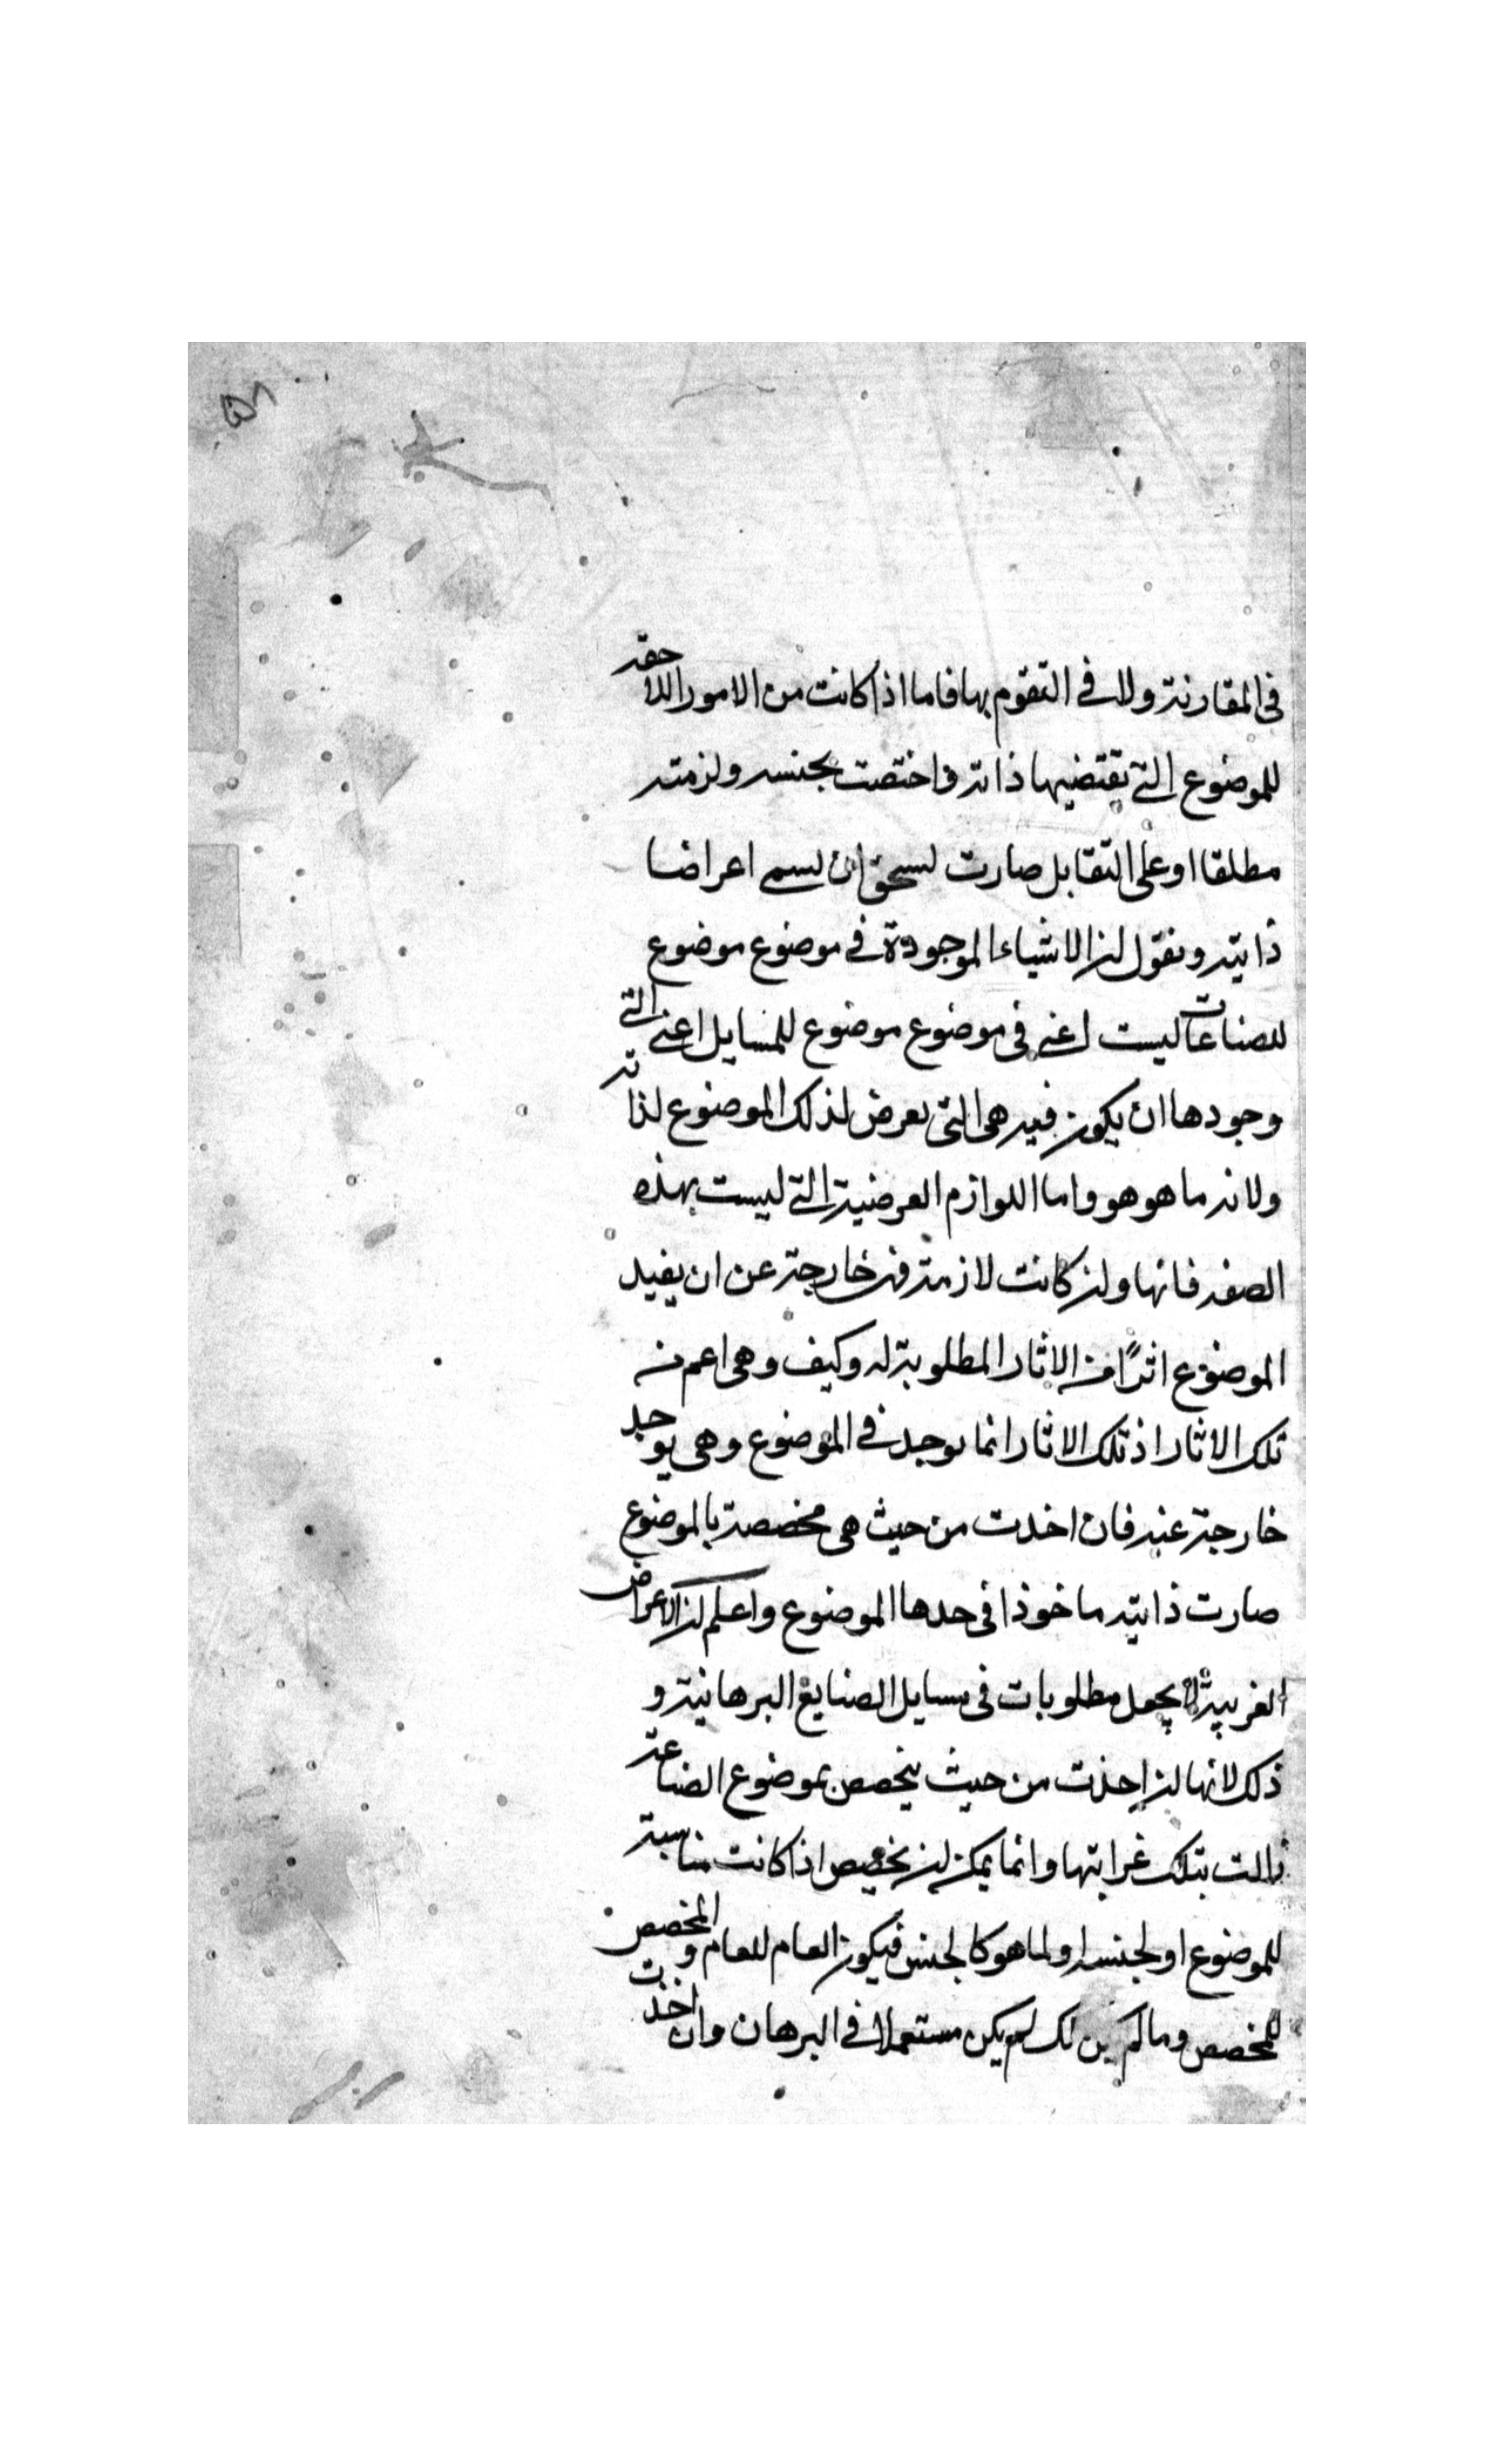 في المقارنة ولا في التقوم بها فاما اذا كانت من الامور اللاحقة
للموضوع التي تقتضيها ذاته واختصت بجنسه ولزمته
مطلقا او على التقابل صارت لستحق ان لسمى اعراضا
ذاتية ونقول ان الاشياء الموجودة في موضوع موضوع
للصناعات ليست اعني في موضوع موضوع للمسايل اعني التي
وجودها ان يكون فيه هي التي يعرض لذلك الموضوع لذاته
ولانه ما هو هو واما اللوازم العرضية التي ليست بهذه
الصفة فانها وان كانت لازمة فهي خارجة عن ان يفيد
الموضوع اثرًا من الاثار المطلوبة له وكيف وهي اعم من
تلك الاثار اذ تلك الاثار انما يوجد في الموضوع وهي يوجد
خارجة عنه فان اخدت من حيث هي مخصصة بالموضوع
صارت ذاتية ماخوذا في حدها الموضوع واعلم ان الاعراض
الغريبة لا يجعل مطلوبات في مسايل الصنايع البرهانية و
ذلك لانها ان اخذت من حيث يتخصص بموضوع الصناعة
زالت بتلك غرابتها وانما يمكن ان يخصص اذا كانت مناسبة
للموضوع او لجنسه او لما هو كالجنس فيكون العام للعام والمخصص
للمخصص وما لم يكن لك لم يكن مستعملا في البرهان وان اخذت